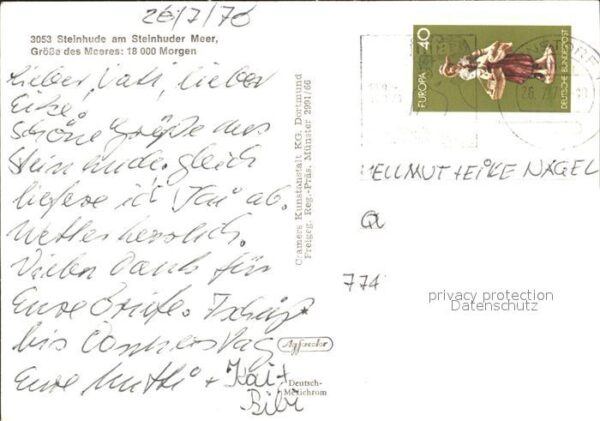 26/7/76
3053 Steinhude am Steinhuder Meer,
Größe des Meeres: 18 000 Morgen
Lieber Vati, lieber
Eike.
Schöne Grüße aus
Steinhude. gleich
liefere ich Kai ab.
Wetter herrlich.
Vielen Dank für
Eure Briefe. Tschüß
bis Donnerstag
Eure Mutti + Kai +
Bibi
Cramers Kunstanstalt KG. Dortmund
Freigeg. Reg.-Präs. Münster 2991/66
Agfacolor
Deutsch-
Metichrom
EUROPA 40
DEUTSCHE BUNDESPOST
HELLMUT + EIKE NÄGEL
774
privacy protection
Datenschutz